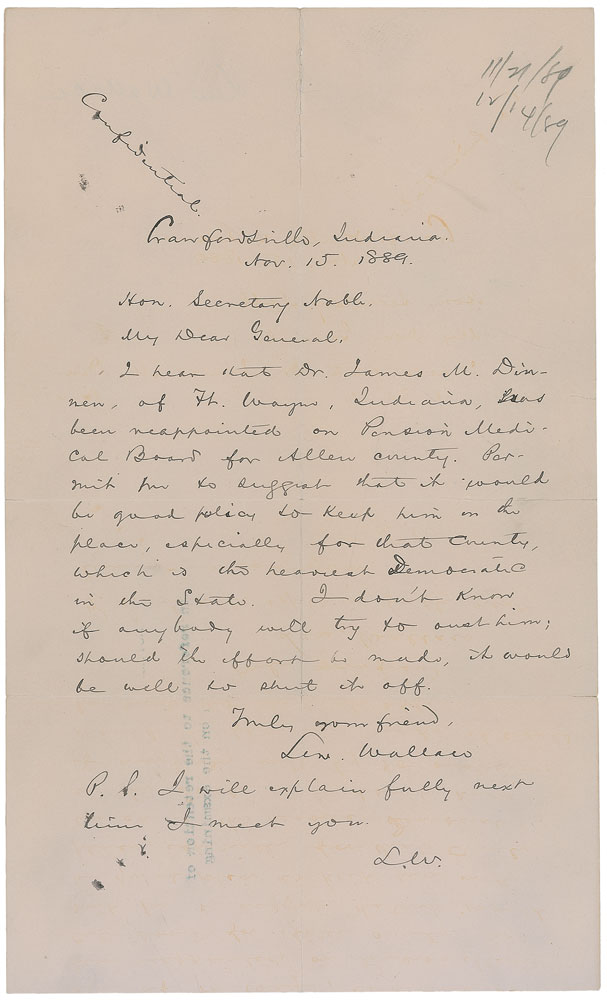 11/21/89
12/14/89
Confidential.
Crawfordsville, Indiana.
Nov. 15. 1889.
Hon. Secretary Noble.
My Dear General.
I hear that Dr. James M. Din-
nen, of Ft. Wayne, Indiana, has
been reappointed on Pension Medi-
cal Board for Allen county. Per-
mit me to suggest that it would
be good policy to keep him in the
place, especially for that County,
which is the heaviest Democratic
in the State. I don't know
if anybody will try to oust him;
should the effort be made, it would
be well to shut it off.
Truly your friend,
Lew. Wallace
P. S. I will explain fully next
time I meet you.
L.W.
on the examining
to the retention of